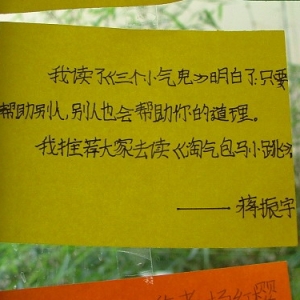 我读了《三个小气鬼》明白了只要
帮助别人,别人也会帮助你的道理。
我推荐大家去读《淘气包马小跳》
——蒋振宇